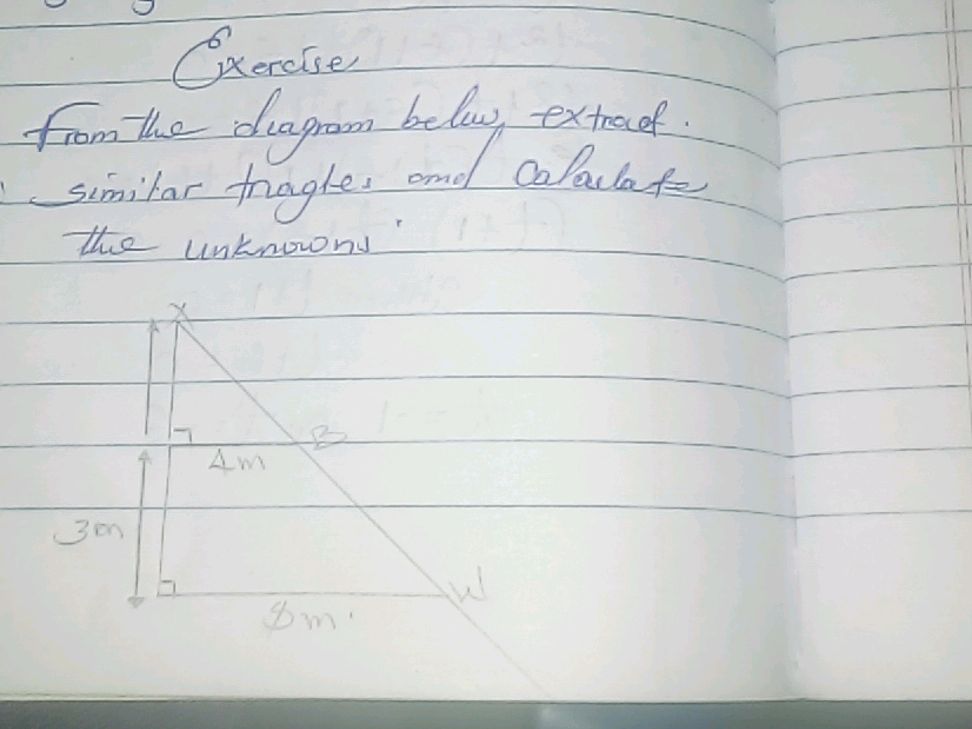 Exercise
From the diagram below, extract.
similar triagles and Calculate
the unknowns.
X
B
4m
3m
W
8m.